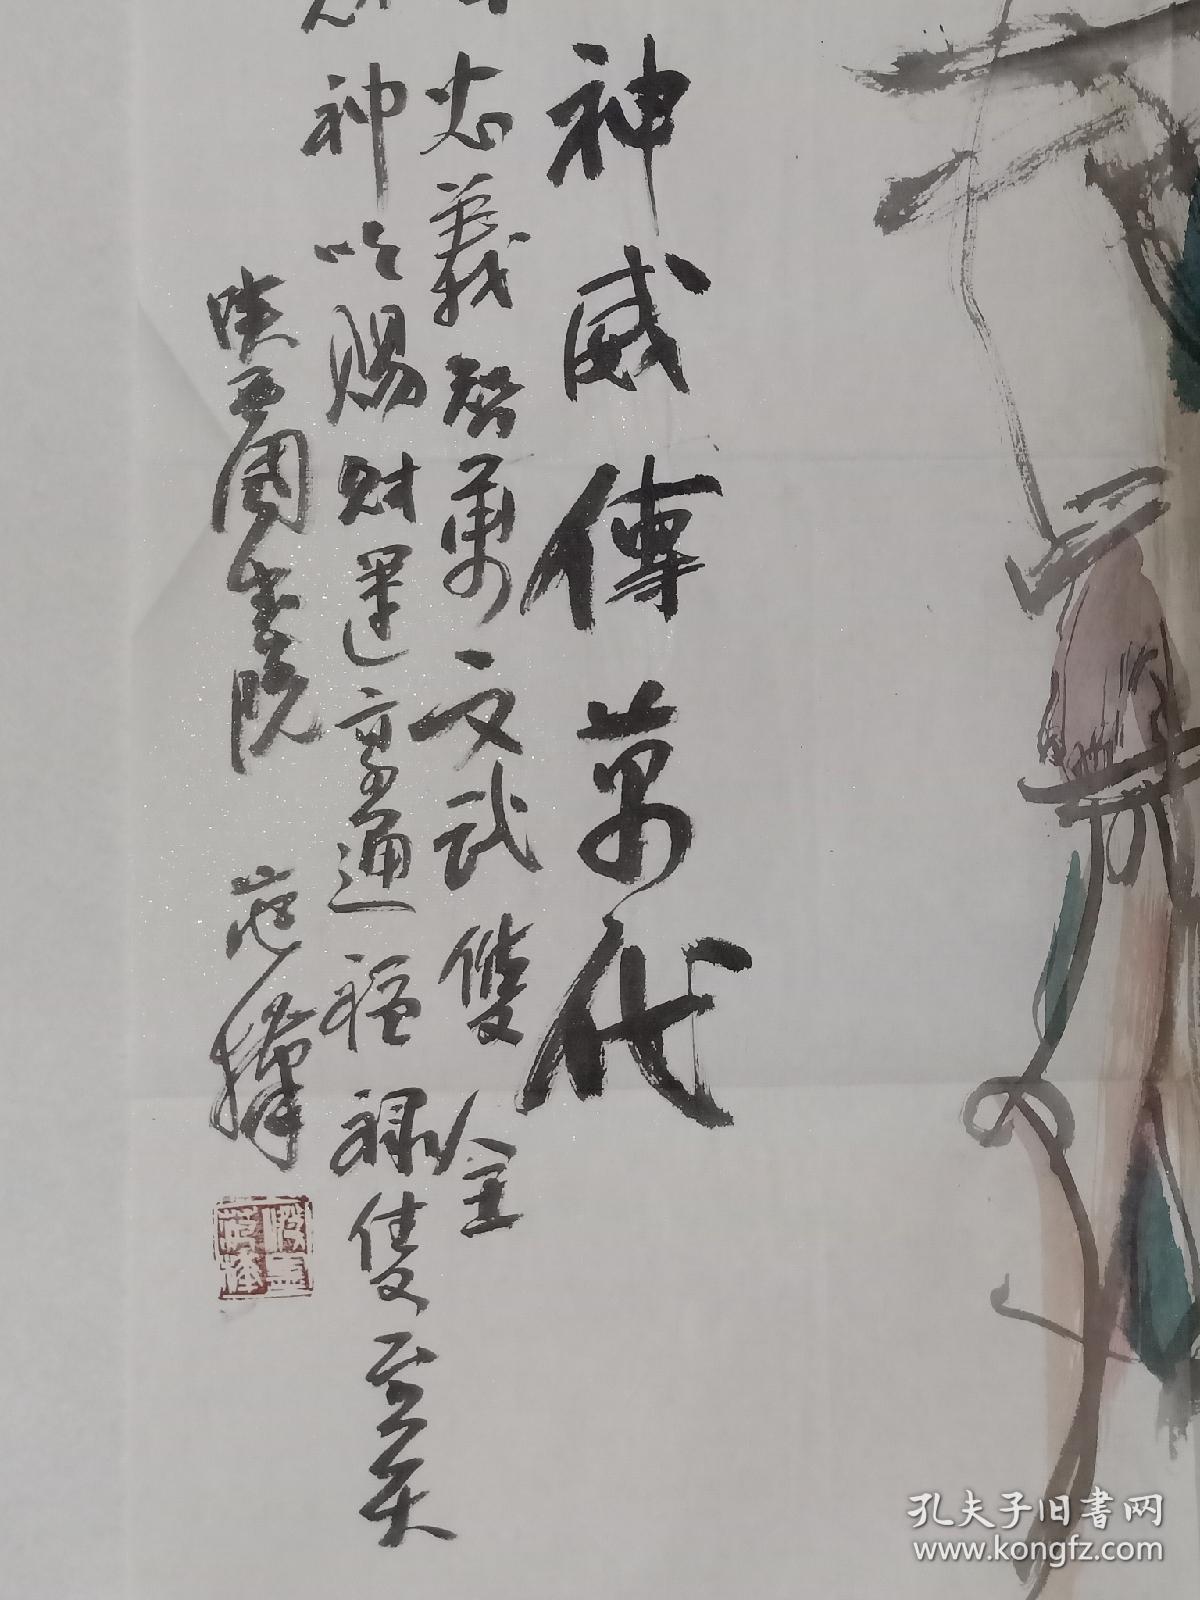 神威傳萬代
忠義智勇文武雙全
神 賜財運亨通福禄雙至矣
陕西國画院
孔夫子旧书网
www.kongfz.com